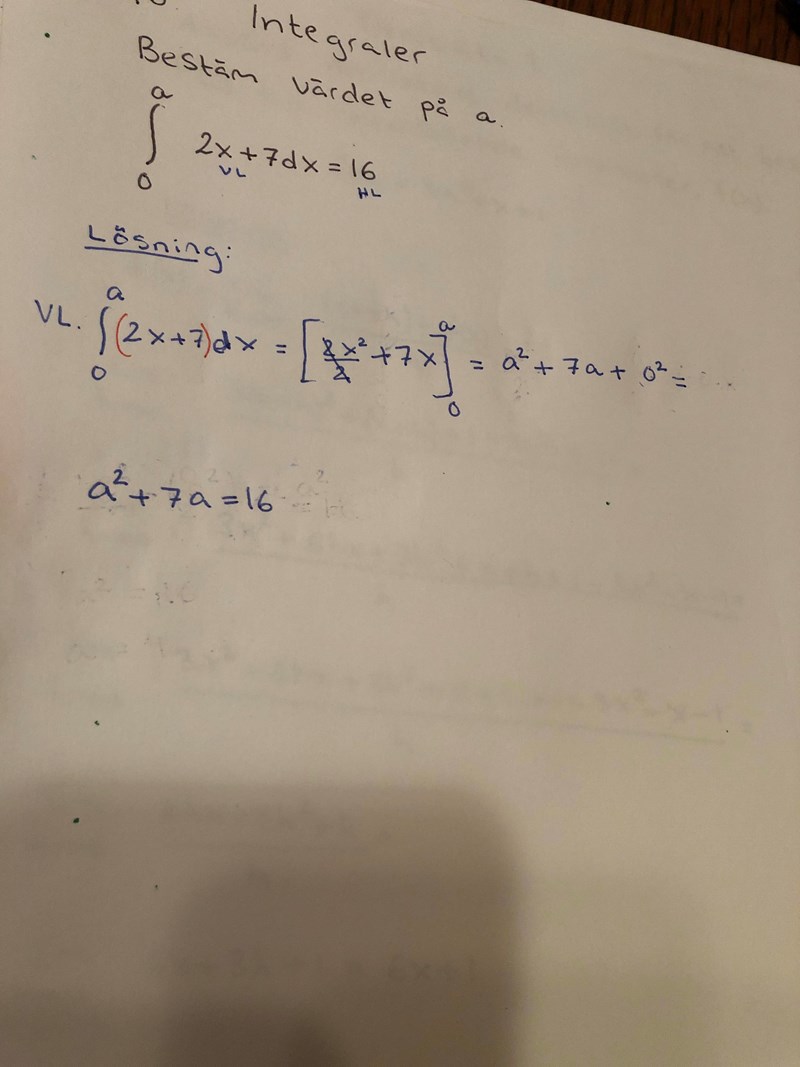 Integraler
Bestäm värdet på a.
∫₀ᵃ 2x+7dx = 16
VL HL
Lösning:
VL. ∫₀ᵃ (2x+7)dx = [2x²/2 + 7x]₀ᵃ = a² + 7a + 0² =
a² + 7a = 16